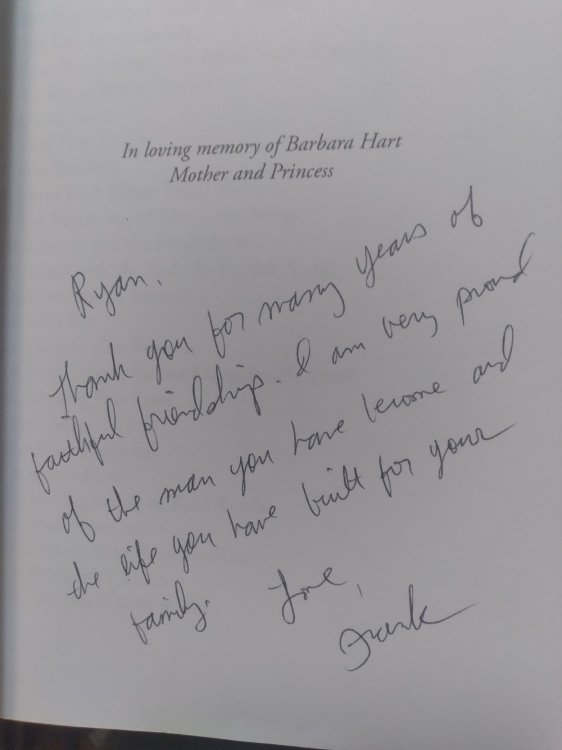 In loving memory of Barbara Hart
Mother and Princess
Ryan.
Thank you for many years of
faithful friendship. I am very proud
of the man you have become and
the life you have built for your
family. Love,
Frank